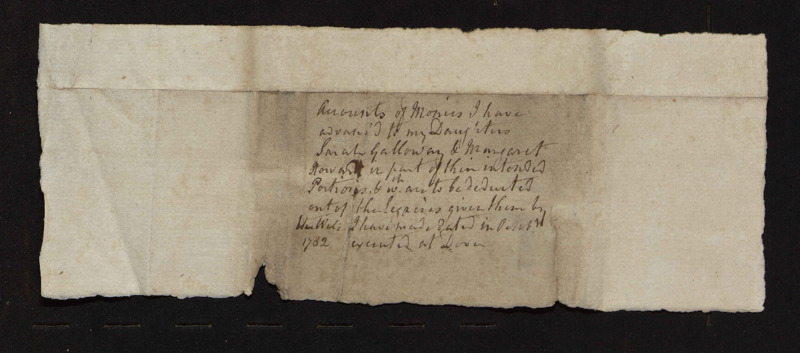 Accounts of Monies I have
advanc'd to my Daughters
Sarah Galloway & Margaret
Howard in part of their intended
Portions, & wch. are to be deducted
out of the legacies given them by
the Will I have made dated in
1782 executed at Dover